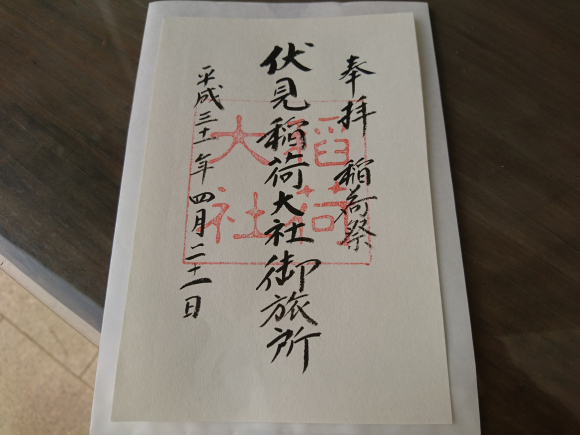 奉拝 稲荷祭
伏見稲荷大社御旅所
平成三十一年四月二十一日
稲荷
大社